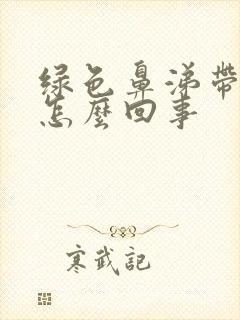 綠色鼻涕帶
怎麼回事
寒武記